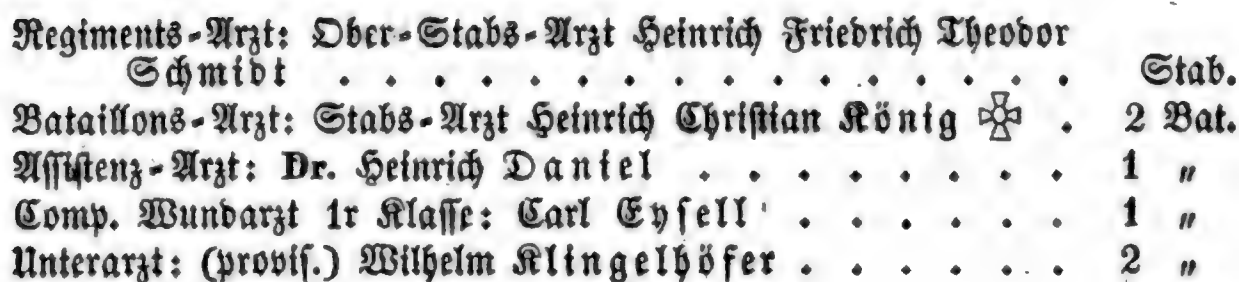 Regiments-Arzt: Ober-Stabs-Arzt Heinrich Friedrich Theodor
Schmidt . . . . . . . . . . . . . . . . Stab.
Bataillons-Arzt: Stabs-Arzt Heinrich Christian König . 2 Bat.
Assistenz-Arzt: Dr. Heinrich Daniel . . . . . . . . 1 „
Comp. Wundarzt 1r Klasse: Carl Eysell . . . . . . 1 „
Unterarzt: (provis.) Wilhelm Klingelhöfer . . . . . . 2 „